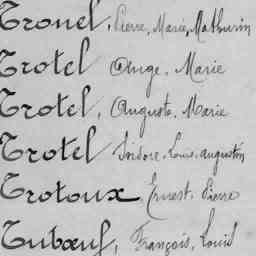 Tronel, Pierre, Marie, Mathurin
Trotel Ange, Marie
Trotel, Auguste, Marie
Trotel Isidore, Louis, augustin
Trotoux Ernest, Pierre
Tubœuf, François, Louis